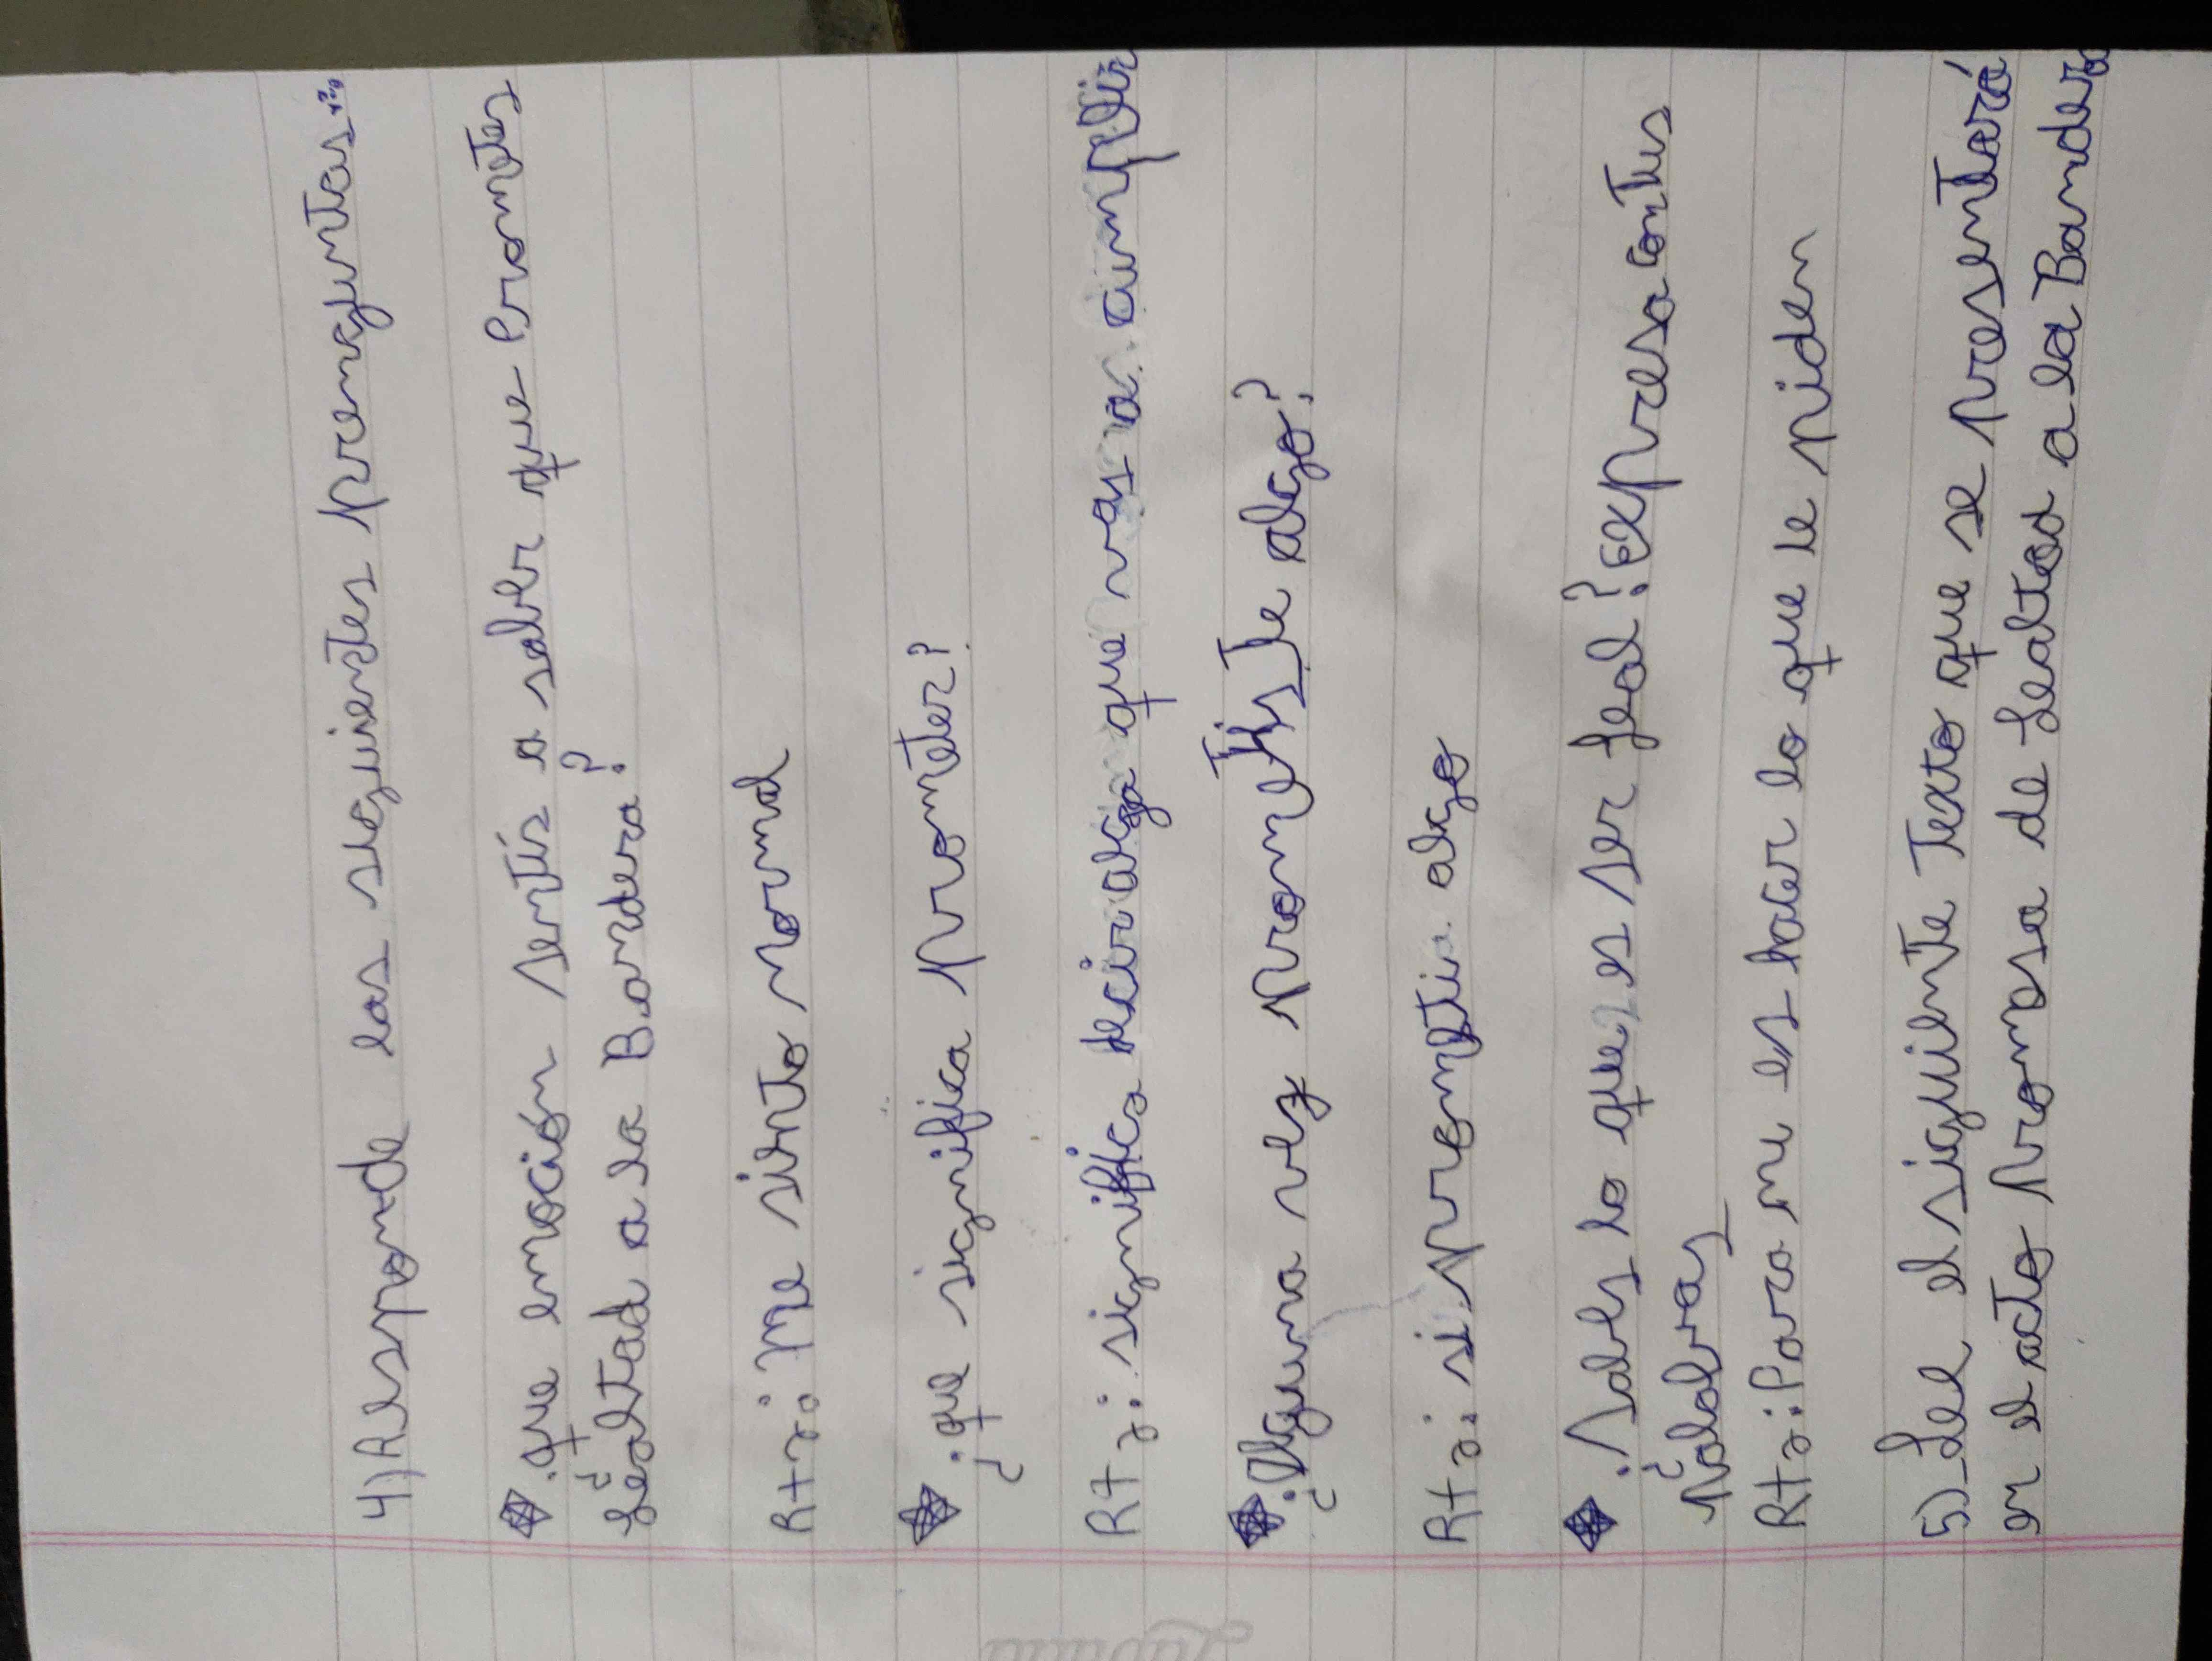 4) Responde las siguientes prengguntas:
. que emoción sentís a saber que Prometes
Léaltad a la Bandera?
Rta: Me siento normal
¿que significa prometer?
Rta: significa decir algo que vas a cumplir
¿Alguna vez prometiste algo?
Rta: si prometia algo
¿Sabes lo que es ser Leal? Expresa con tus
palabras
Rta: Para mi es hacer lo que le piden
5) Lee el siguiente Texto que se presentará
en el acto promesa de Lealtad a la Bandera